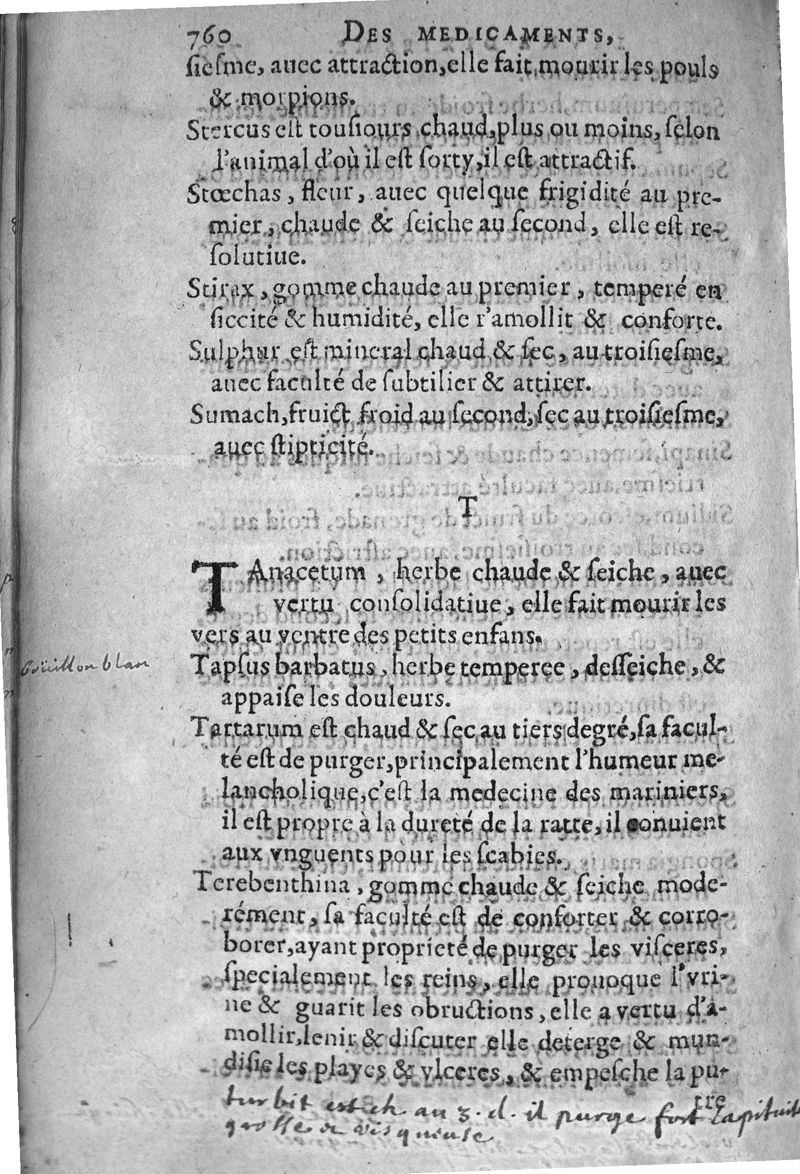 760 DES MEDICAMENTS,
siesme, auec attraction,elle fait mourir les pouls
& morpions.
Stercus est tousiours chaud,plus ou moins, selon
l'animal d'où il est sorty,il est attractif.
Stœchas, fleur, auec quelque frigidité au pre-
mier, chaude & seiche au second, elle est re-
solutiue.
Stirax, gomme chaude au premier, temperé en
siccité & humidité, elle r'amollit & conforte.
Sulphur est mineral chaud & sec, au troisiesme,
auec faculté de subtilier & attirer.
Sumach,fruict froid au second,sec au troisiesme,
auec stipticité.
T
TAnacetum, herbe chaude & seiche, auec
vertu consolidatiue, elle fait mourir les
vers au ventre des petits enfans.
Bouillon blan
Tapsus barbatus, herbe temperee, desseiche, &
appaise les douleurs.
Tartarum est chaud & sec au tiers degré,sa facul-
té est de purger,principalement l'humeur me-
lancholique,c'est la medecine des mariniers,
il est propre à la dureté de la ratte, il conuient
aux vnguents pour les scabies.
Terebenthina, gomme chaude & seiche mode-
rément, sa faculté est de conforter & corro-
borer,ayant proprieté de purger les visceres,
specialement les reins, elle prouoque l'vri-
ne & guarit les obructions, elle a vertu d'a-
mollir,lenir & discuter elle deterge & mun-
disie les playes & vlceres, & empesche la pu-
tre
turbit est ch. au 3. d. il purge fort la pituite
grosse & visqueuse